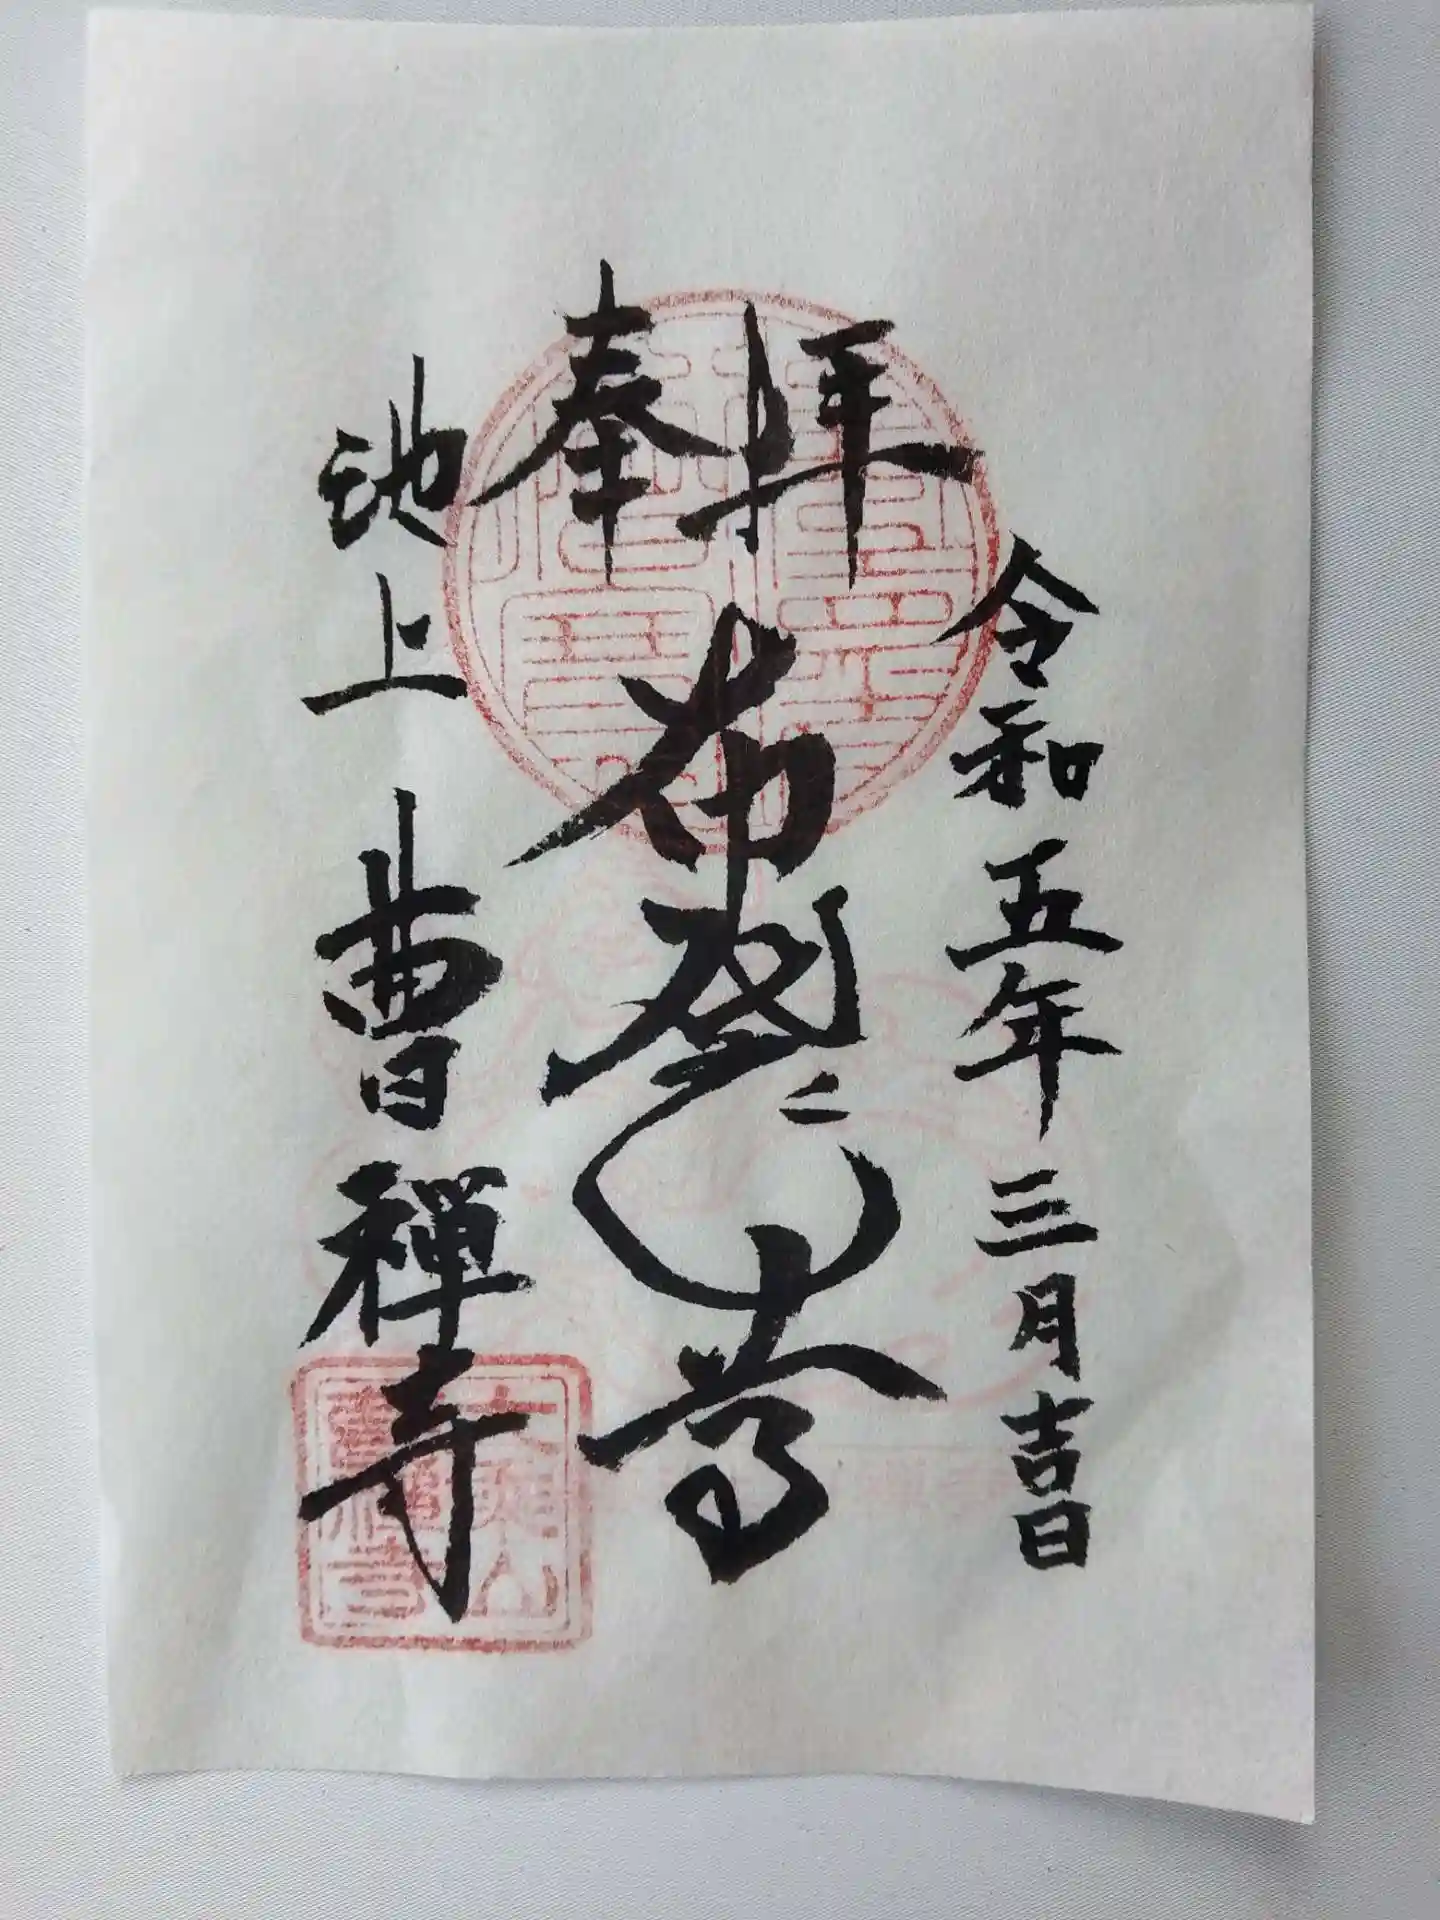 奉拝
令和五年三月吉日
布袋尊
池上 曹禪寺